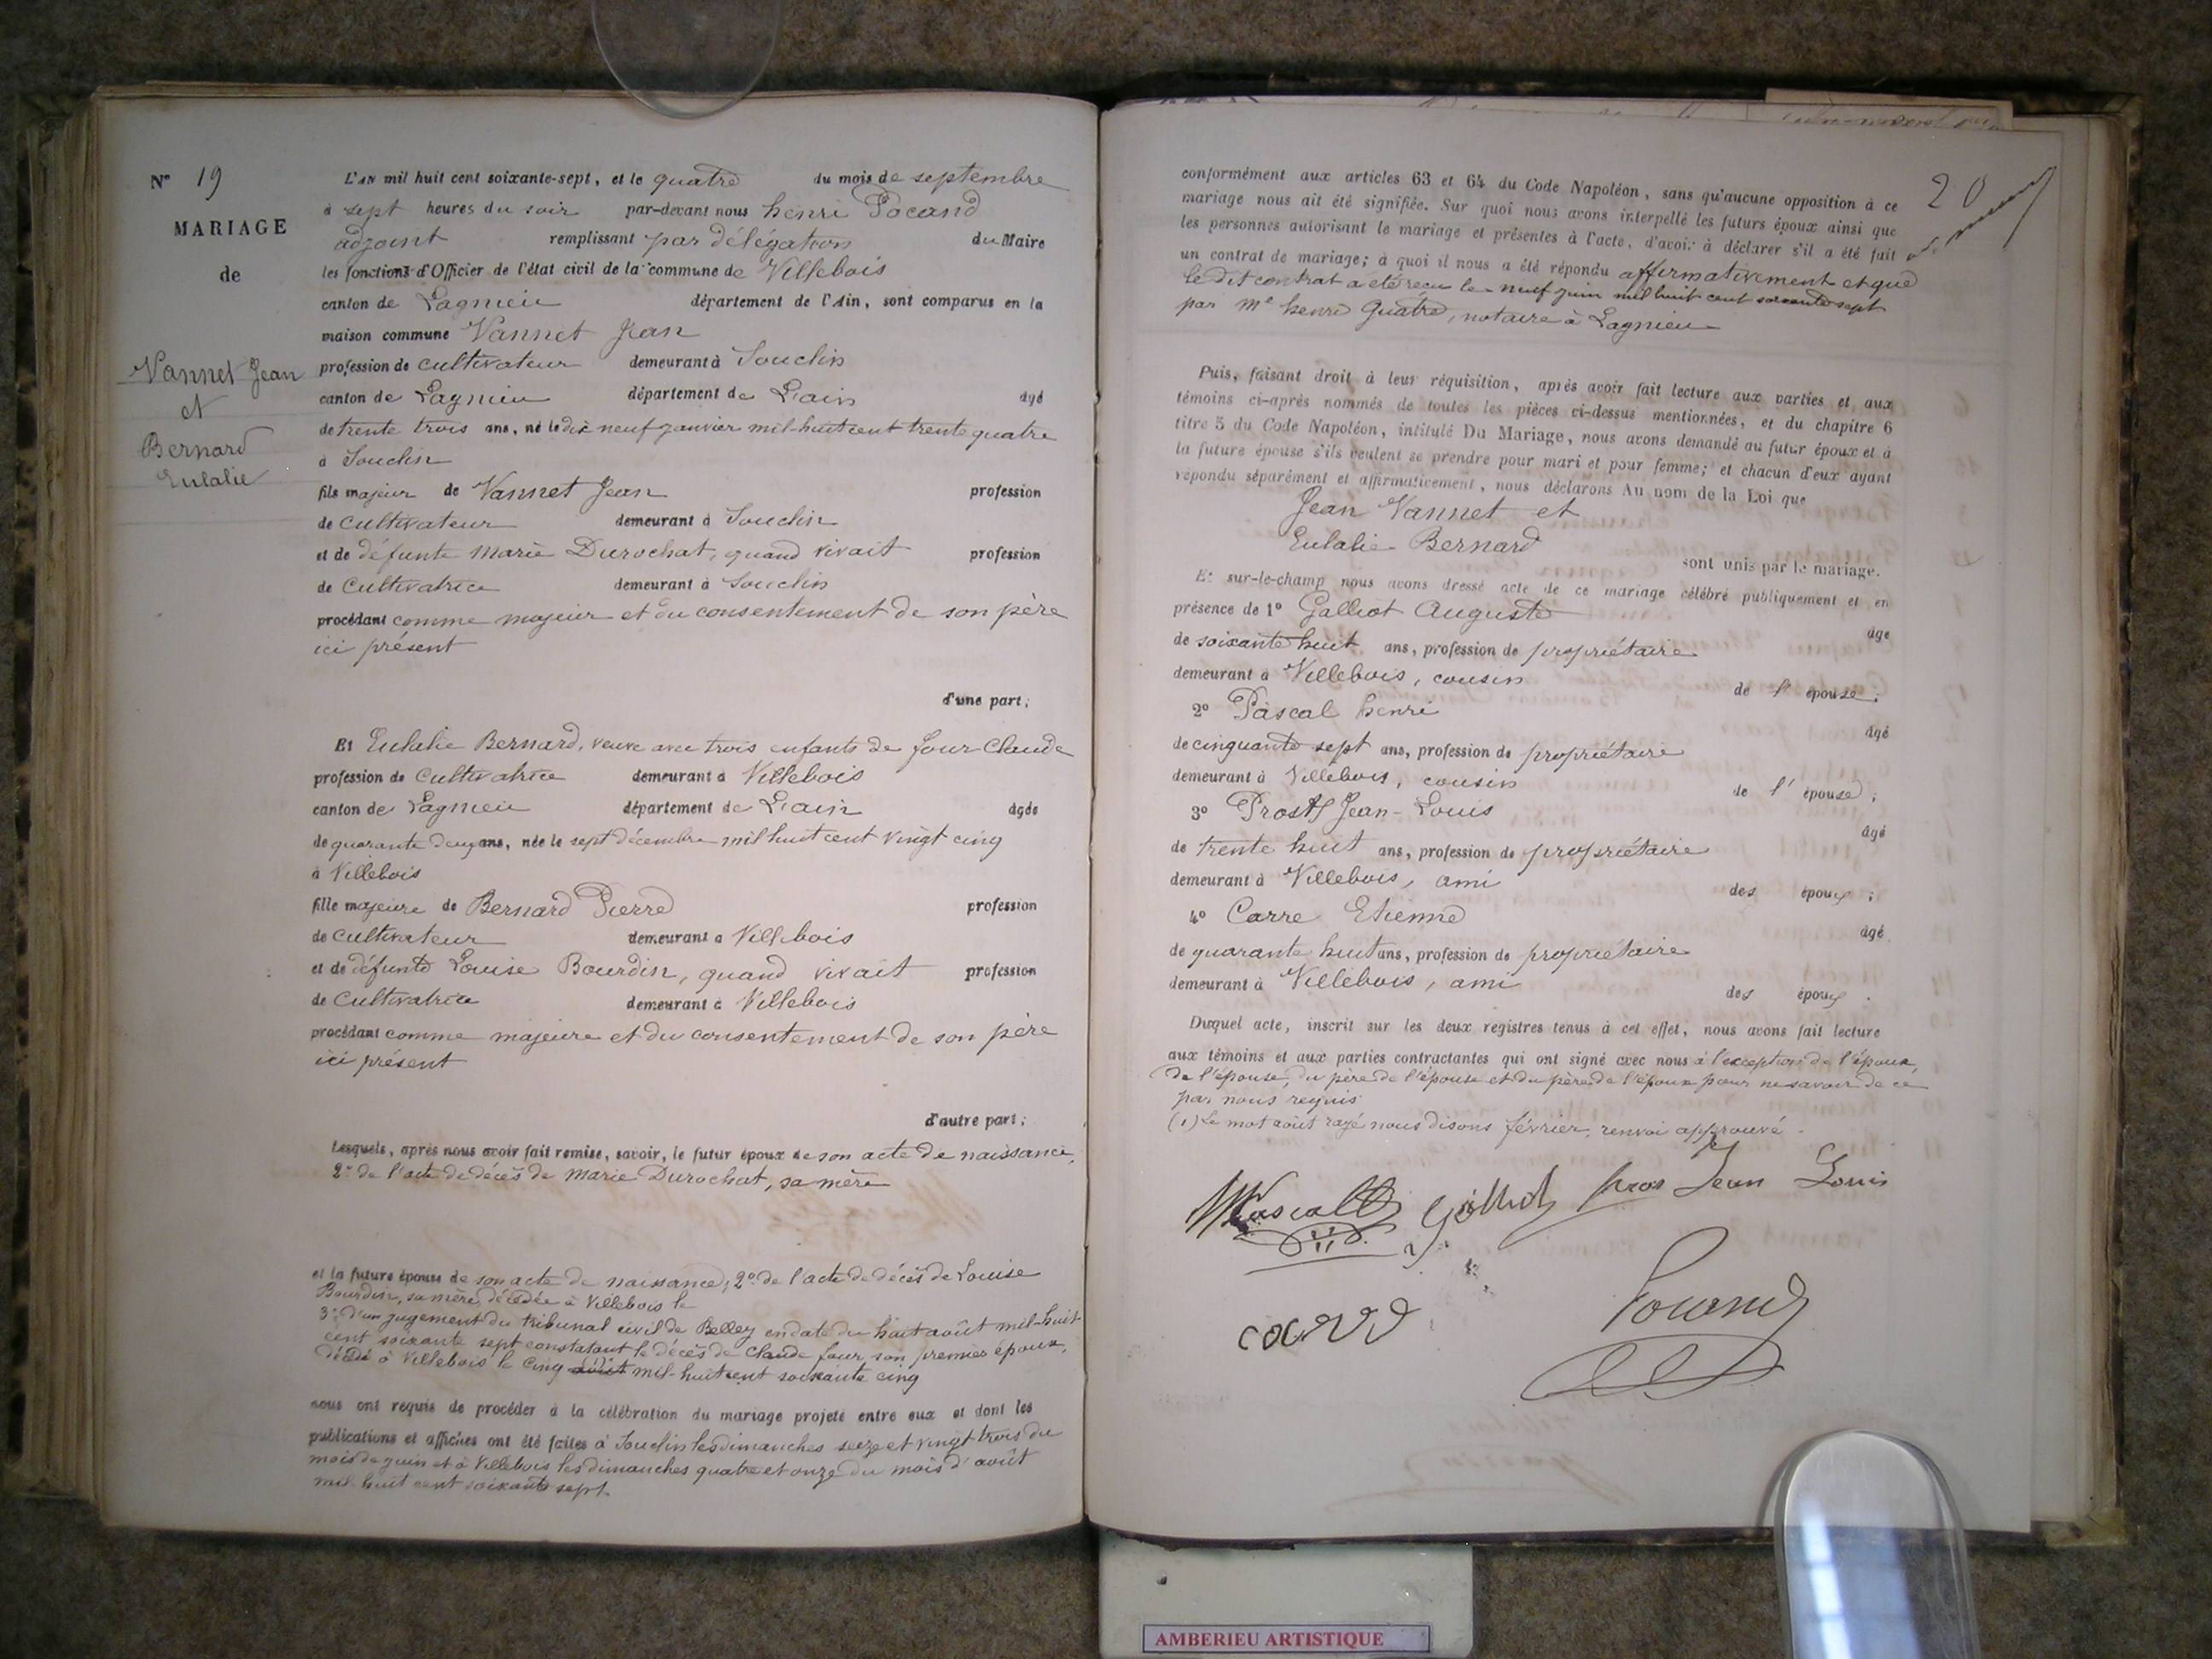 N° 19
MARIAGE
de
Vannet Jean
et
Bernard
Eulalie
L'AN mil huit cent soixante-sept, et le quatre du mois de septembre
à sept heures du soir par-devant nous henri Pocand
adjoint remplissant par délégation du Maire
les fonctions d'Officier de l'état civil de la commune de Villebois
canton de Lagnieu département de l'Ain, sont comparus en la
maison commune Vannet Jean
profession de cultivateur demeurant à Souclin
canton de Lagnieu département de L'ain âgé
de trente trois ans, né le dix neuf janvier mil-huit cent trente quatre
à Souclin
fils majeur de Vannet Jean profession
de cultivateur demeurant à Souclin
et de défunte Marie Durochat, quand vivait profession
de cultivatrice demeurant à Souclin
procédant comme majeur et du consentement de son père
ici présent
d'une part;
Et Eulalie Bernard, veuve avec trois enfants de Jour Claude
profession de cultivatrice demeurant à Villebois
canton de Lagnieu département de L'ain âgée
de quarante deux ans, née le sept décembre mil huit cent vingt cinq
à Villebois
fille majeure de Bernard Pierre profession
de cultivateur demeurant à Villebois
et de défunte Louise Bourdin, quand vivait profession
de cultivatrice demeurant à Villebois
procédant comme majeure et du consentement de son père
ici présent
d'autre part;
Lesquels, après nous avoir fait remise, savoir, le futur époux de son acte de naissance,
2° de l'acte de décès de Marie Durochat, sa mère
et la future épouse de son acte de naissance, 2° de l'acte de décès de Louise
Bourdin, sa mère, décédée à Villebois le
3° d'un jugement du tribunal civil de Belley en date du huit août mil-huit
cent soixante sept constatant le décès de Claude Jour son premier époux,
décédé à Villebois le cinq août mil-huit cent soixante cinq
nous ont requis de procéder à la célébration du mariage projeté entre eux et dont les
publications et affiches ont été faites à Souclin les dimanches seize et vingt trois du
mois de juin et à Villebois les dimanches quatre et onze du mois d'août
mil huit cent soixante sept
20
conformément aux articles 63 et 64 du Code Napoléon, sans qu'aucune opposition à ce
mariage nous ait été signifiée. Sur quoi nous avons interpellé les futurs époux ainsi que
les personnes autorisant le mariage et présentes à l'acte, d'avoir à déclarer s'il a été fait
un contrat de mariage; à quoi il nous a été répondu affirmativement et que
le dit contrat a été reçu le neuf juin mil huit cent soixante sept
par Me henri Quatre, notaire à Lagnieu
Puis, faisant droit à leur réquisition, après avoir fait lecture aux parties et aux
témoins ci-après nommés de toutes les pièces ci-dessus mentionnées, et du chapitre 6
titre 5 du Code Napoléon, intitulé Du Mariage, nous avons demandé au futur époux et à
la future épouse s'ils veulent se prendre pour mari et pour femme; et chacun d'eux ayant
répondu séparément et affirmativement, nous déclarons Au nom de la Loi que
Jean Vannet et
Eulalie Bernard
sont unis par le mariage.
Et sur-le-champ nous avons dressé acte de ce mariage célébré publiquement et en
présence de 1° Galliot Auguste âgé
de soixante huit ans, profession de propriétaire
demeurant à Villebois, cousin de l'épouse;
2° Pascal henri âgé
de cinquante sept ans, profession de propriétaire
demeurant à Villebois, cousin de l'épouse;
3° Prost Jean-Louis âgé
de trente huit ans, profession de propriétaire
demeurant à Villebois, ami des époux;
4° Carre Etienne âgé
de quarante huit ans, profession de propriétaire
demeurant à Villebois, ami des époux.
Duquel acte, inscrit sur les deux registres tenus à cet effet, nous avons fait lecture
aux témoins et aux parties contractantes qui ont signé avec nous à l'exception de l'époux,
de l'épouse, du père de l'épouse et du père de l'époux pour ne savoir de ce
par nous requis
(1) Le mot août rayé nous disons février, renvoi approuvé.
Pascal Galliot pros Jean Louis
carre
AMBERIEU ARTISTIQUE